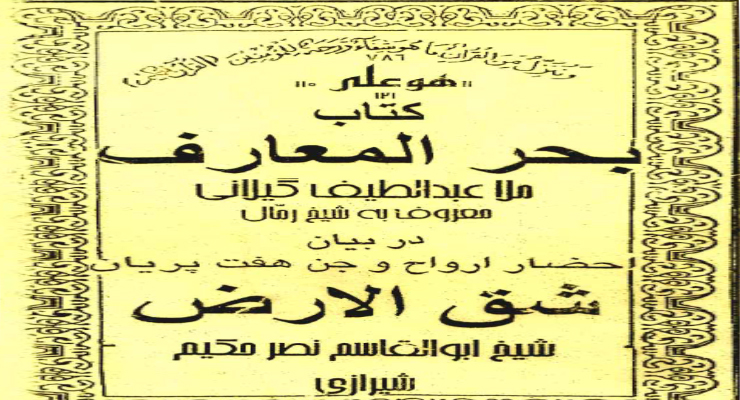 وننزل من القرآن ما هو شفاء ورحمة للمؤمنين (القرآن)
۷۸۶
۱۱۰ هو علی ۱۱۰
۱۲۱
کتاب
بحر المعارف
ملا عبدالطیف گیلانی
معروف به شیخ رمّال
در بیان
احضار ارواح و جن هفت پریان
شق الارض
شیخ ابوالقاسم نصر حکیم
شیرازی